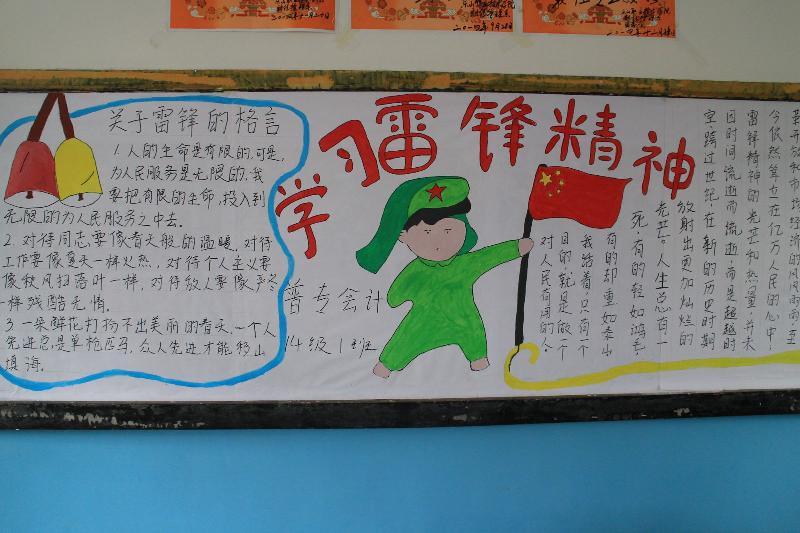 关于雷锋的格言
1.人的生命是有限的,可是,
为人民服务是无限的,我
要把有限的生命,投入到
无限的为人民服务之中去。
2.对待同志要像春天般的温暖,对待
工作要像夏天一样火热,对待个人主义要
像秋风扫落叶一样,对待敌人要像严冬
一样残酷无情。
3.一朵鲜花打扮不出美丽的春天,一个人
先进总是单枪匹马,众人先进才能移山
填海。
学习雷锋精神
普专会计
14级1班
革开放和市场经济的风风雨雨,至
今依然矗立在亿万人民的心中。
雷锋精神的光芒和热量,并未
因时间流逝而流逝,而是超越时
空跨过世纪在新的历史时期
放射出更加灿烂的
光芒。人生总有一
死,有的轻如鸿毛,
有的却重如泰山
我活着,只有一个
目的就是做一个
对人民有用的人。